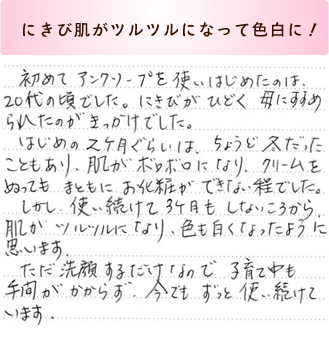 にきび肌がツルツルになって色白に！
初めて アンクソープを使いはじめたのは、
20代の頃でした。にきびがひどく 母にすすめ
られたのがきっかけでした。
はじめの2ヶ月ぐらいは、ちょうど冬だった
こともあり、肌がボロボロになり、クリームを
ぬっても まともに お化粧ができない程でした。
しかし 使い続けて 3ヶ月も しないころから、
肌が ツルツルになり、色も白くなったように
思います。
ただ 洗顔するだけなので 子育て中も
手間がかからず、今でも ずっと 使い続けて
います.